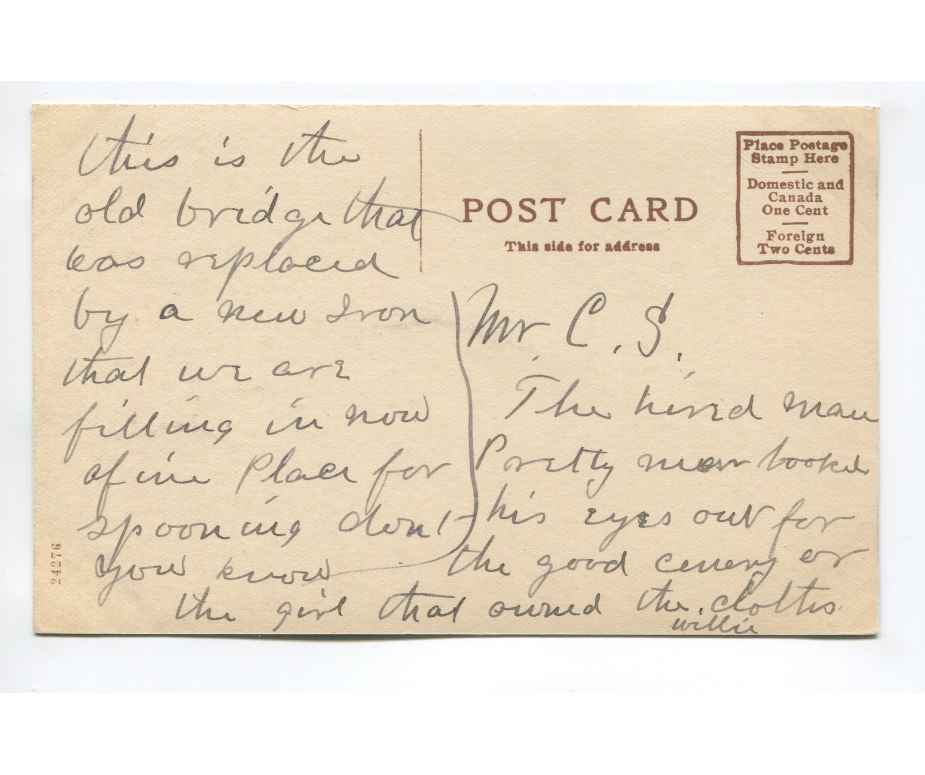 this is the
old bridge that
was replaced
by a new Iron
that we are
filling in now
fine Place for
spooning dont
you know
POST CARD
This side for address
Place Postage
Stamp Here
Domestic and
Canada
One Cent
Foreign
Two Cents
Mr. C. S.
The hired man
Pretty near looked
his eyes out for
the good cenery or
the girl that owned the clothes
Willie
24276